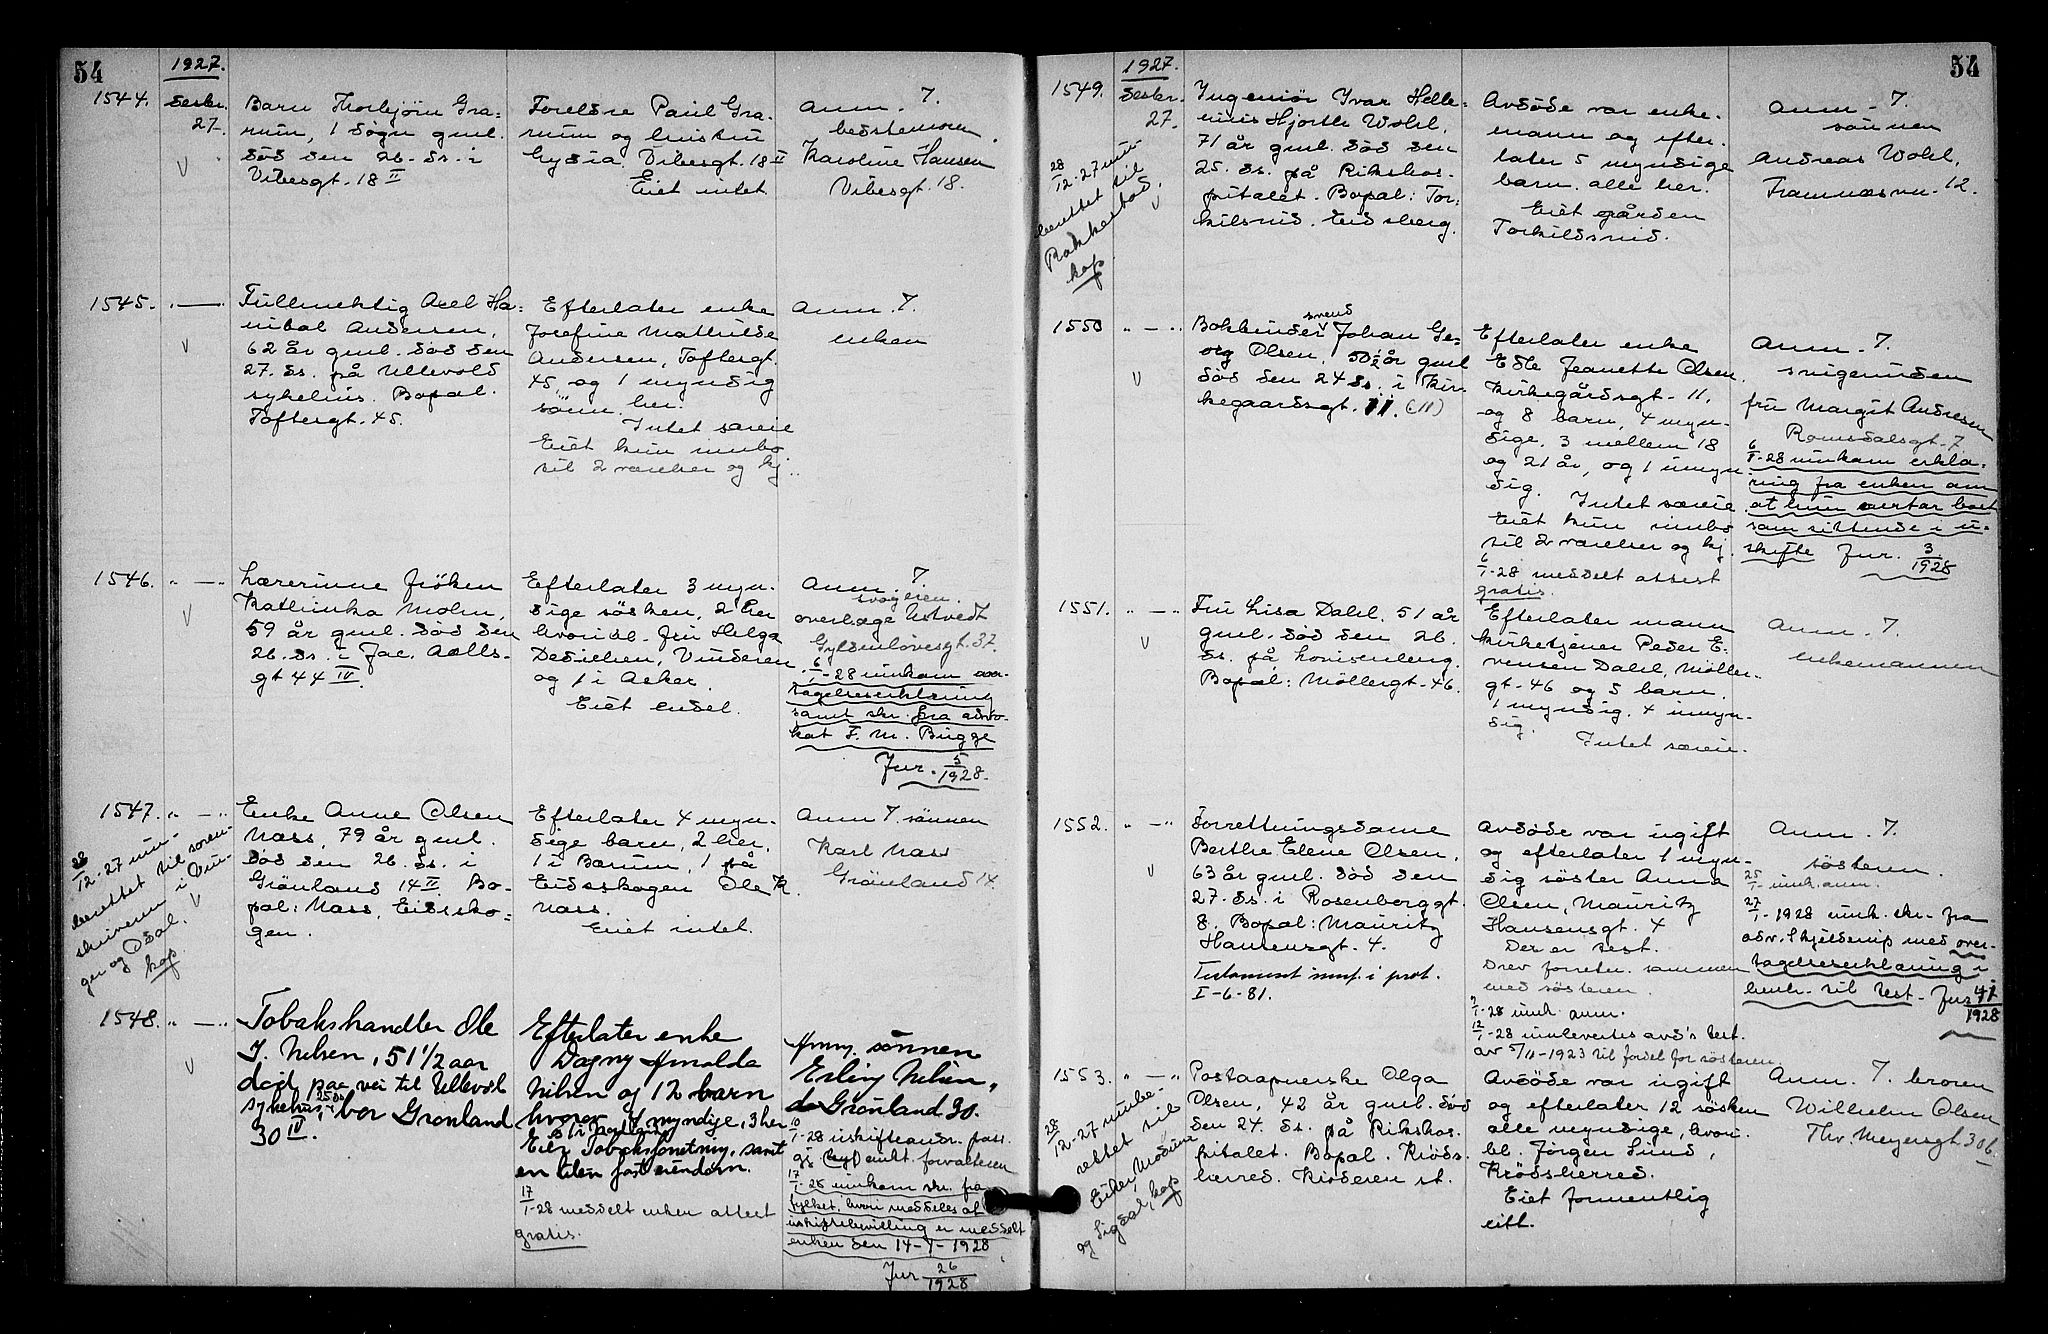 54
1927.
1544.
Desbr.
27.
Barn Thorbjørn Gra=
num, 1 døgn gml.
død den 26. ds. i
Vibesgt. 18 II
Foreldre Paul Gra=
num og hustru
Lydia. Vibesgt. 18 II
Eiet intet
Anm. 7.
bestemoren
Karoline Hansen
Vibesgt. 18.
1545. " — "
Fullmektig Axel Ha=
nibal Andersen,
62 år gml. død den
27. ds. på Ullevold
sykehus. Bopæl.
Toftergt. 45.
Efterlater enke
Josefine Mathilde
Andersen, Toftergt.
45, og 1 myndig
sønn. her.
Intet særeie
Eiet kun innbo
til 2 værelser og kj.
Anm. 7.
enken
1546. " — "
Lærerinne frøken
Kathinka Mohn,
59 år gml. død den
26. ds. i Jac. Aalls-
gt 44 IV.
Efterlater 3 myn-
dige søsken, 2 her
hvoribl. fru Helga
Dedichen, Vinderen
og 1 i Asker.
Eiet endel.
Anm. 7.
svogeren.
overlæge Ustvedt
Gyldenløvesgt. 37.
6/1-28 innkom over-
tagelseserklæring
samt skr. fra advo-
kat F. M. Bugge
Jur. 5/1928.
1547. " — "
28/12-27 inn-
berettet til soren-
skriveren i Vin-
ger og Odal.
kop
Enke Anne Olsen
Næss, 79 år gml.
død den 26. ds. i
Grønland 14 II. Bo-
pæl: Næss, Eidsko=
gen.
Efterlater 4 myn-
dige barn, 2 her,
1 i Bærum, 1 på
Eidsskogen Ole K.
Næss.
Eiet intet.
Anm 7. sønnen
Karl Næss
Grønland 14.
1548. " — "
Tobakshandler Ole
J. Nilsen, 51 1/2 aar
død paa vei til Ullevål
sykehus, 25 ds. bor Grønland
30 IV.
Efterlater enke
Dagny Arnolda
Nilsen og 12 barn
hvorav 4 myndige, 3 her
Eier Tobaksforretning, samt
en liten fast eiendom.
17/1-28 meddelt enken attest
gratis.
Anm. sønnen
Erling Nilsen,
Grønland 30.
10/1-28 uskifteandr. pass.
17/1-28 innkom skr. fra
fylket, hvori meddeles at
uskiftebevilling er meddelt
enken den 14-1-1928
Jur 26/1928
54
1927.
1549.
Desbr.
27.
28/12-27 inn-
berettet til
Rakkestad.
kop
Ingeniør Ivar Helle=
nius Hjorth Wohl,
71 år gml. død den
25. ds. på Rikshos-
pitalet. Bopæl: Tor=
kilsrud. Eidsberg.
Avdøde var enke-
mann og efter-
later 5 myndige
barn. alle her.
Eiet gården
Torkildsrud.
Anm. 7.
sønnen
Andreas Wohl,
Framnæsvn. 12.
1550 " — "
Bokbindersvend Johan Ge-
org Olsen, 50 1/2 år gml
død den 24 ds. i Kir-
kegaardsgt. 11. (11)
Efterlater enke
Edle Jeanette Olsen.
Kirkegårdsgt. 11,
og 8 barn, 4 myn-
dige, 3 mellem 18
og 21 år, og 1 umyn-
dig.
Intet særeie.
Eiet kun innbo
til 2 værelser og kj.
6/1-28 meddelt attest
gratis.
Anm. 7.
svigerinden
fru Margit Andresen
Romsdalsgt. 7
6/1-28 innkom erklæ-
ring fra enken om
at hun overtar boet
som sittende i u-
skifte Jur. 3/1928
1551. " — "
Fru Lisa Dahl. 51 år
gml. død den 26.
ds. på Lovisenberg.
Bopæl: Møllergt. 46.
Efterlater mann
kirketjener Peder E-
vensen Dahl, Møller-
gt. 46 og 5 barn.
1 myndig. 4 umyn-
dig.
Intet særeie.
Anm. 7.
enkemannen
1552. " — "
Forretningsdame
Berthe Elene Olsen,
63 år gml. død den
27. ds. i Rosenborggt.
8. Bopæl: Mauritz
Hansensgt. 4.
Testament innf. i prot.
I-6-81.
Avdøde var ugift
og efterlater 1 myn-
dig søster Anna
Olsen, Mauritz
Hansensgt. 4
Der er test.
Drev forretn. sammen
med søsteren.
9/1-28 innk. anm.
12/1-28 innlevertes avd's test.
av 5/11-1923 til fordel for søsteren.
Anm. 7.
søsteren.
25/1- innk. anm.
27/1-1928 innk. skr. fra
adv. Skjelderup med over-
tagelseserklæring i
henh. til test. Jur 41/1928
1553. " — "
28/12-27 innbe-
rettet til
Eiker, Modum
og Sigdal, kop
Postaapnerske Olga
Olsen, 42 år gml. død
den 24. ds. på Rikshos-
pitalet. Bopæl. Krøds-
herred. Krøderen st.
Avdøde var ugift
og efterlater 12 søsken
alle myndige, hvori-
bl. Jørgen Lund,
Krødsherred.
Eiet formentlig
litt.
Anm. 7. broren
Wilhelm Olsen
Thv. Meyersgt. 30 b.